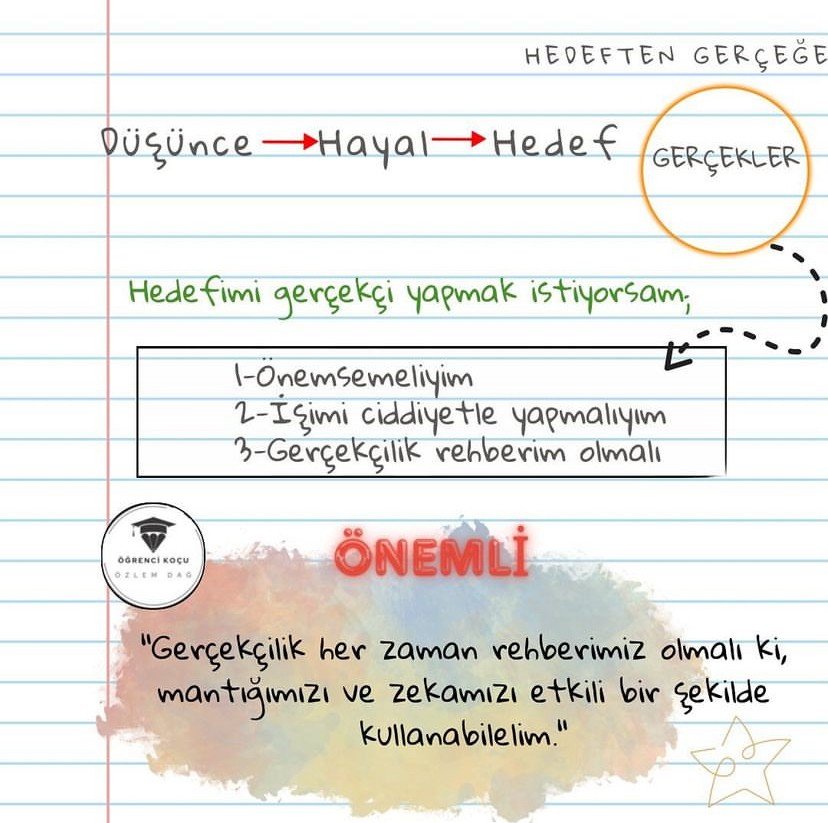 HEDEFTEN GERÇEĞE
Düşünce → Hayal → Hedef
GERÇEKLER
Hedefimi gerçekçi yapmak istiyorsam;
1-Önemsemeliyim
2-İşimi ciddiyetle yapmalıyım
3-Gerçekçilik rehberim olmalı
ÖĞRENCİ KOÇU
ÖZLEM DAĞ
ÖNEMLİ
"Gerçekçilik her zaman rehberimiz olmalı ki,
mantığımızı ve zekamızı etkili bir şekilde
kullanabilelim."